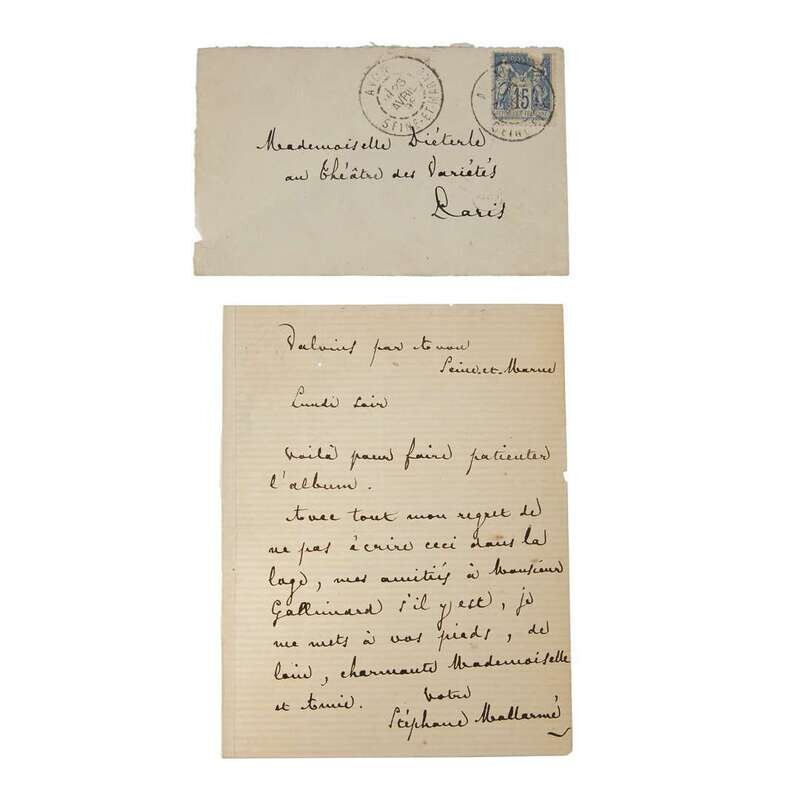 AVON
AVRIL
SEINE-ET-MARNE
15
Mademoiselle Diéterle
au Théâtre des Variétés
Paris
Valvins par Avon
Seine-et-Marne
Lundi soir
Voilà pour faire patienter
l'album.
Avec tout mon regret de
ne pas écrire ceci dans la
loge, mes amitiés à Monsieur
Gallimard s'il y est, je
me mets à vos pieds, de
loin, charmante Mademoiselle
et Amie. Votre
Stéphane Mallarmé